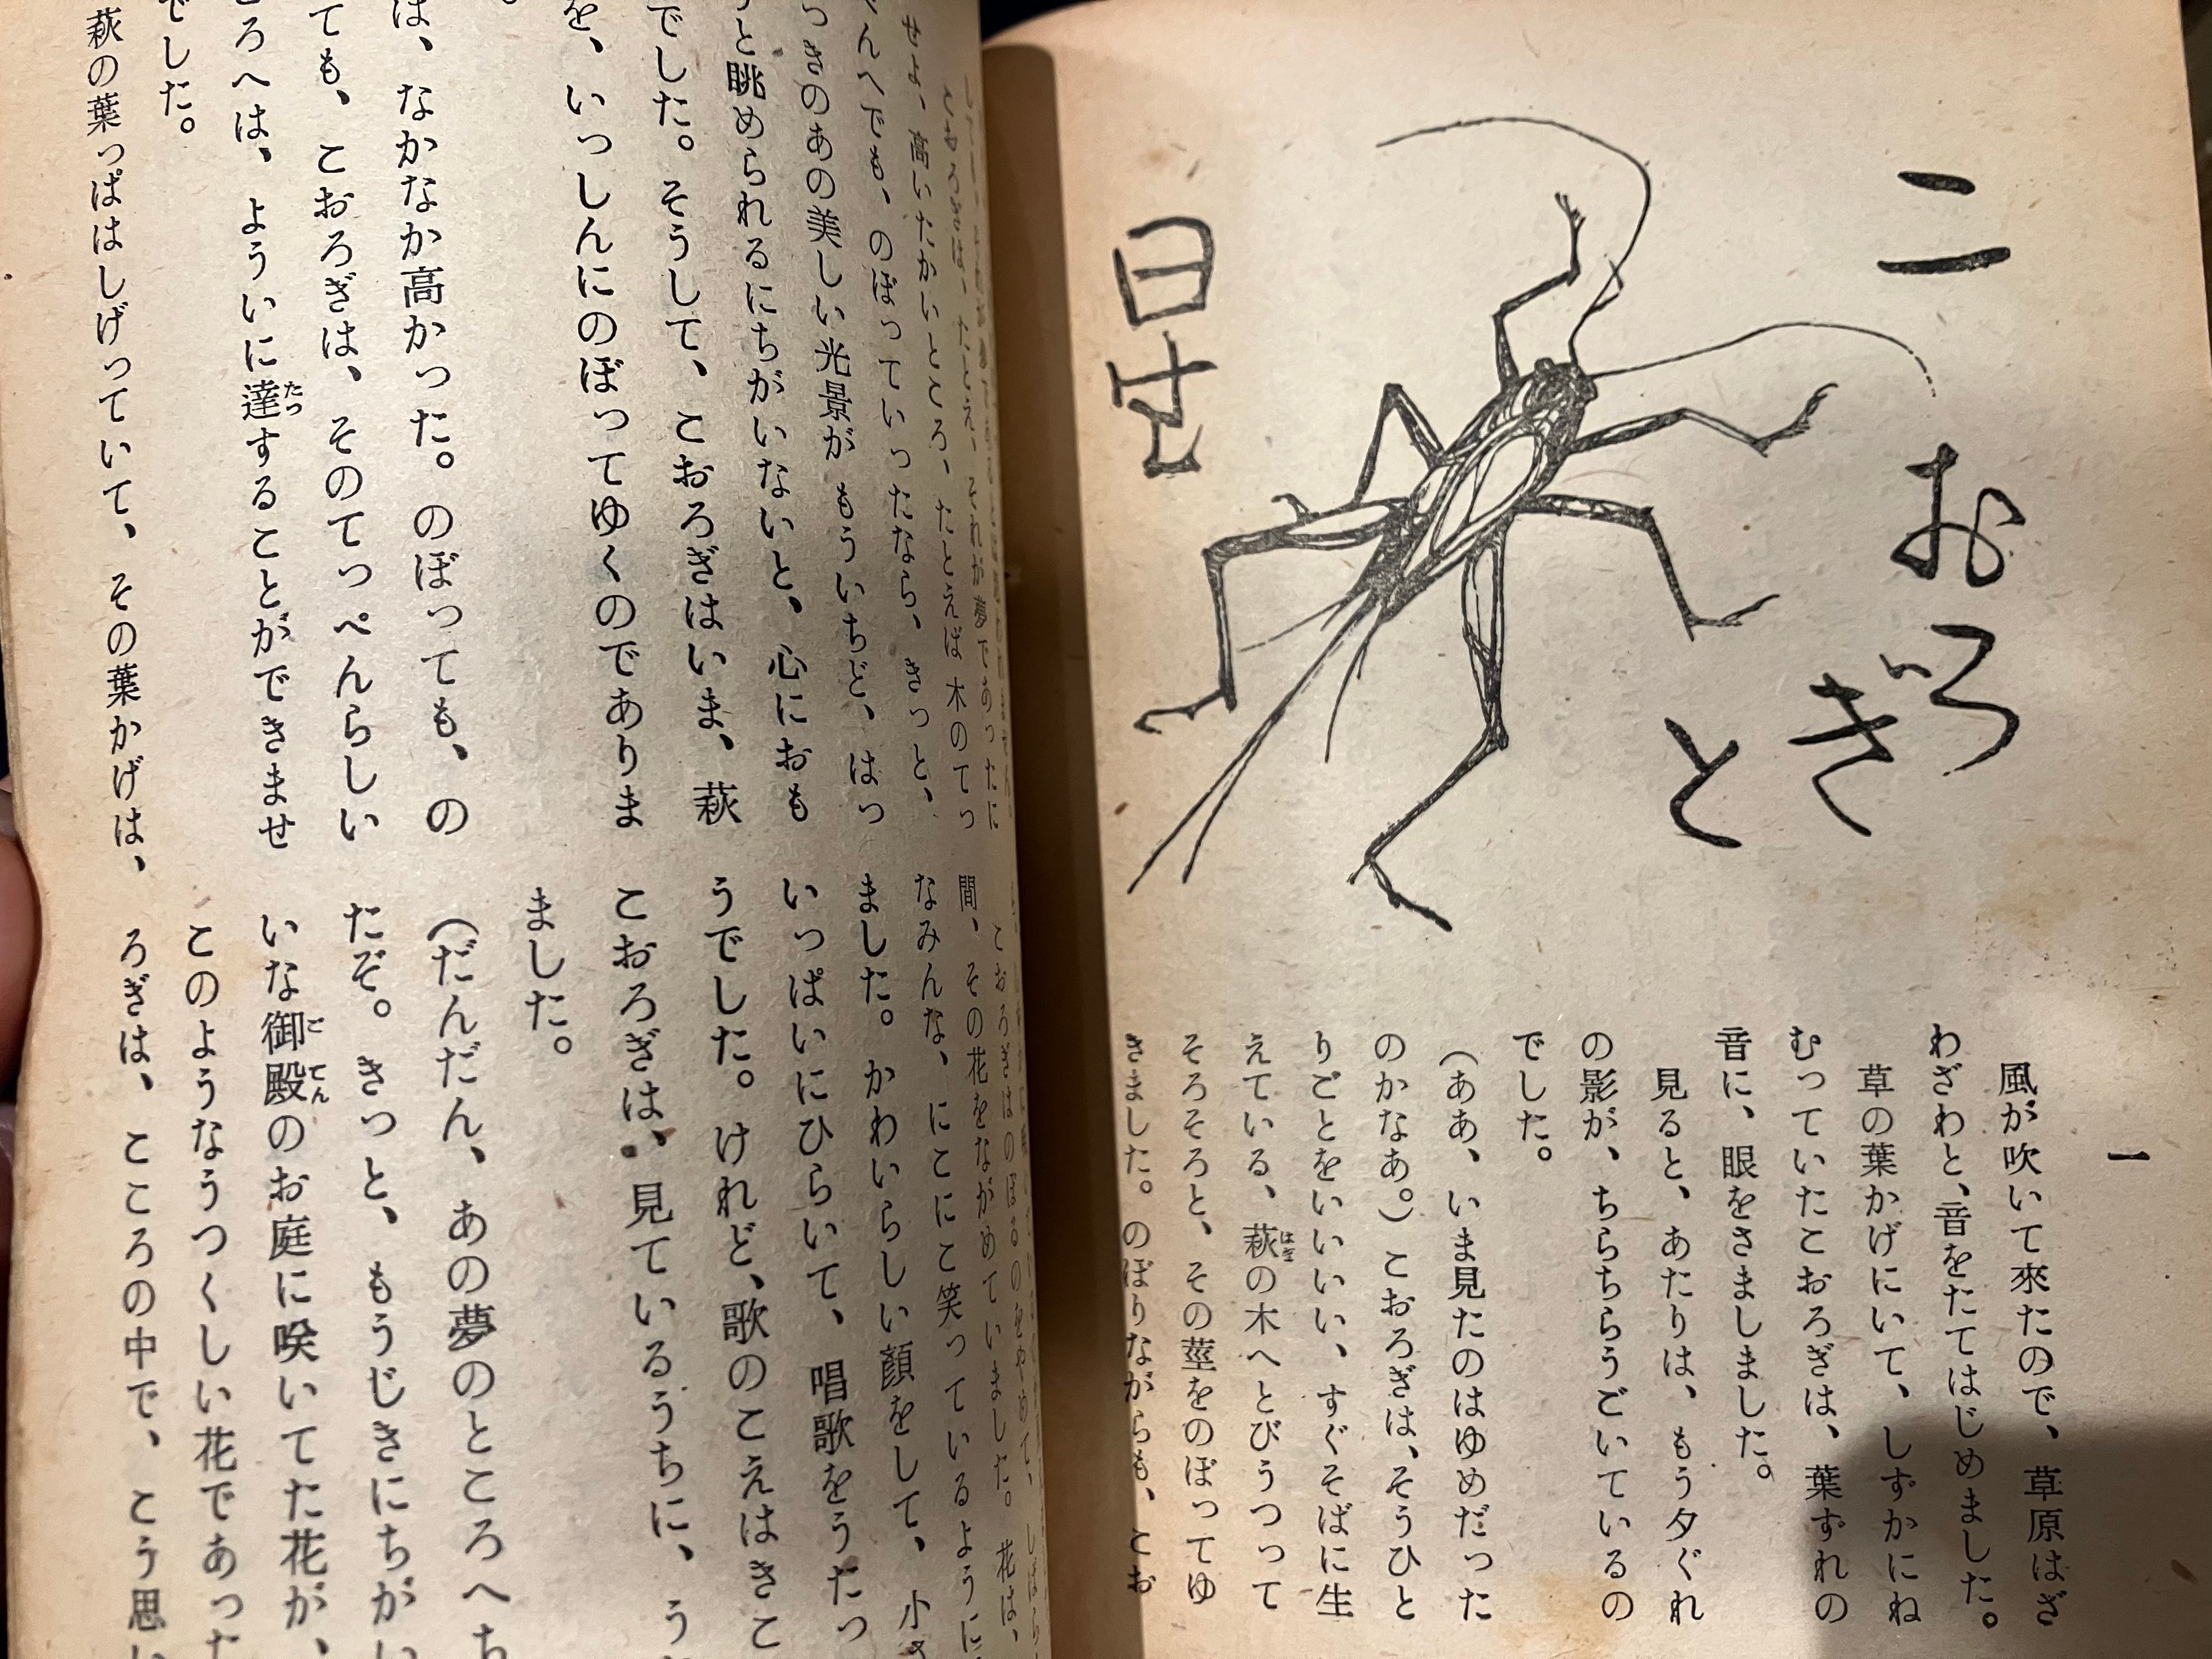 こおろぎと
一
風が吹いて來たので、草原はざ
わざわと、音をたてはじめました。
草の葉かげにいて、しずかにね
むっていたこおろぎは、葉ずれの
音に、眼をさましました。
見ると、あたりは、もう夕ぐれ
の影が、ちらちらうごいているの
でした。
（ああ、いま見たのはゆめだった
のかなあ。）こおろぎは、そうひと
りごとをいいいい、すぐそばに生
えている、萩はぎの木へとびうつって
そろそろと、その莖をのぼってゆ
きました。のぼりながらも、こお
たとえ、それが夢であったに
たとえば木のてっ
のぼっていったなら、きっと、
っきのあの美しい光景が もういちど、はっ
っと眺められるにちがいないと、心におも
でした。そうして、こおろぎはいま、萩
を、いっしんにのぼってゆくのでありま
は、なかなか高かった。のぼっても、の
ても、こおろぎは、そのてっぺんらしい
ころへは、よういに達たつすることができませ
でした。
萩の葉っぱはしげっていて、その葉かげは、
こおろぎはのぼるのをやめて、しばらく
間、その花をながめていました。花は、
なみんな、にこにこ笑っているように
ました。かわいらしい顏をして、小さ
いっぱいにひらいて、唱歌をうたっ
うでした。けれど、歌のこえはきこ
こおろぎは、見ているうちに、う
ました。
（だんだん、あの夢のところへち
たぞ。きっと、もうじきにちがい
いな御殿ごてんのお庭に咲いてた花が、
このようなうつくしい花であった
ろぎは、こころの中で、こう思い